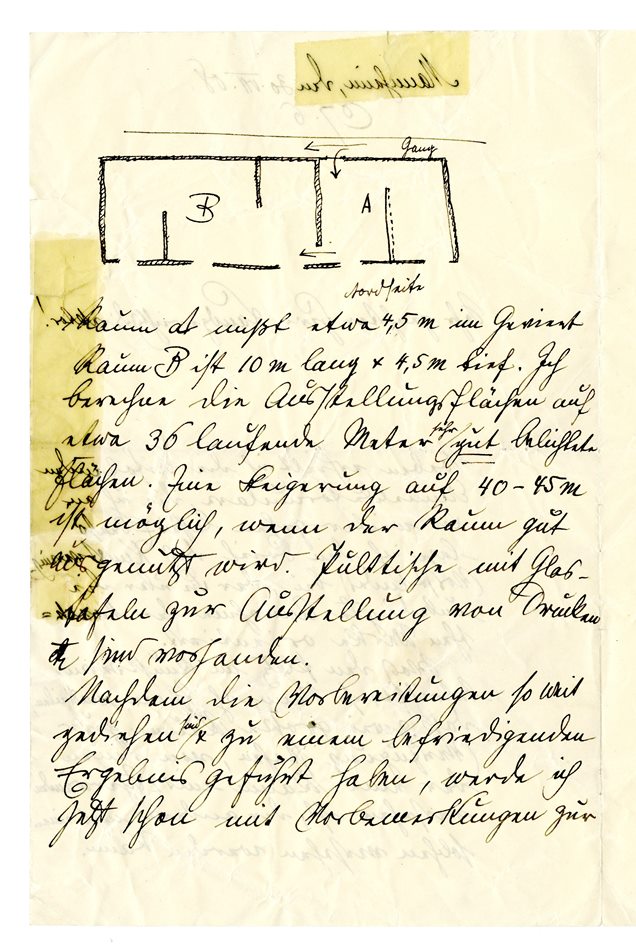 Gang
B
A
Nordseite
Raum A mißt etwa 4,5 m im Geviert
Raum B ist 10 m lang & 4,5 m tief. Ich
berechne die Ausstellungsflächen auf
etwa 36 laufende Meter sehr gut belichtete
Flächen. Eine Steigerung auf 40-45 m
ist möglich, wenn der Raum gut
ausgenutzt wird. Pulttische mit Glas-
tafeln zur Ausstellung von Drucken
sind vorhanden.
Nachdem die Vorbereitungen so weit
gediehen sind & zu einem befriedigenden
Ergebnis geführt haben, werde ich
jetzt schon mit Vorbemerkungen zur